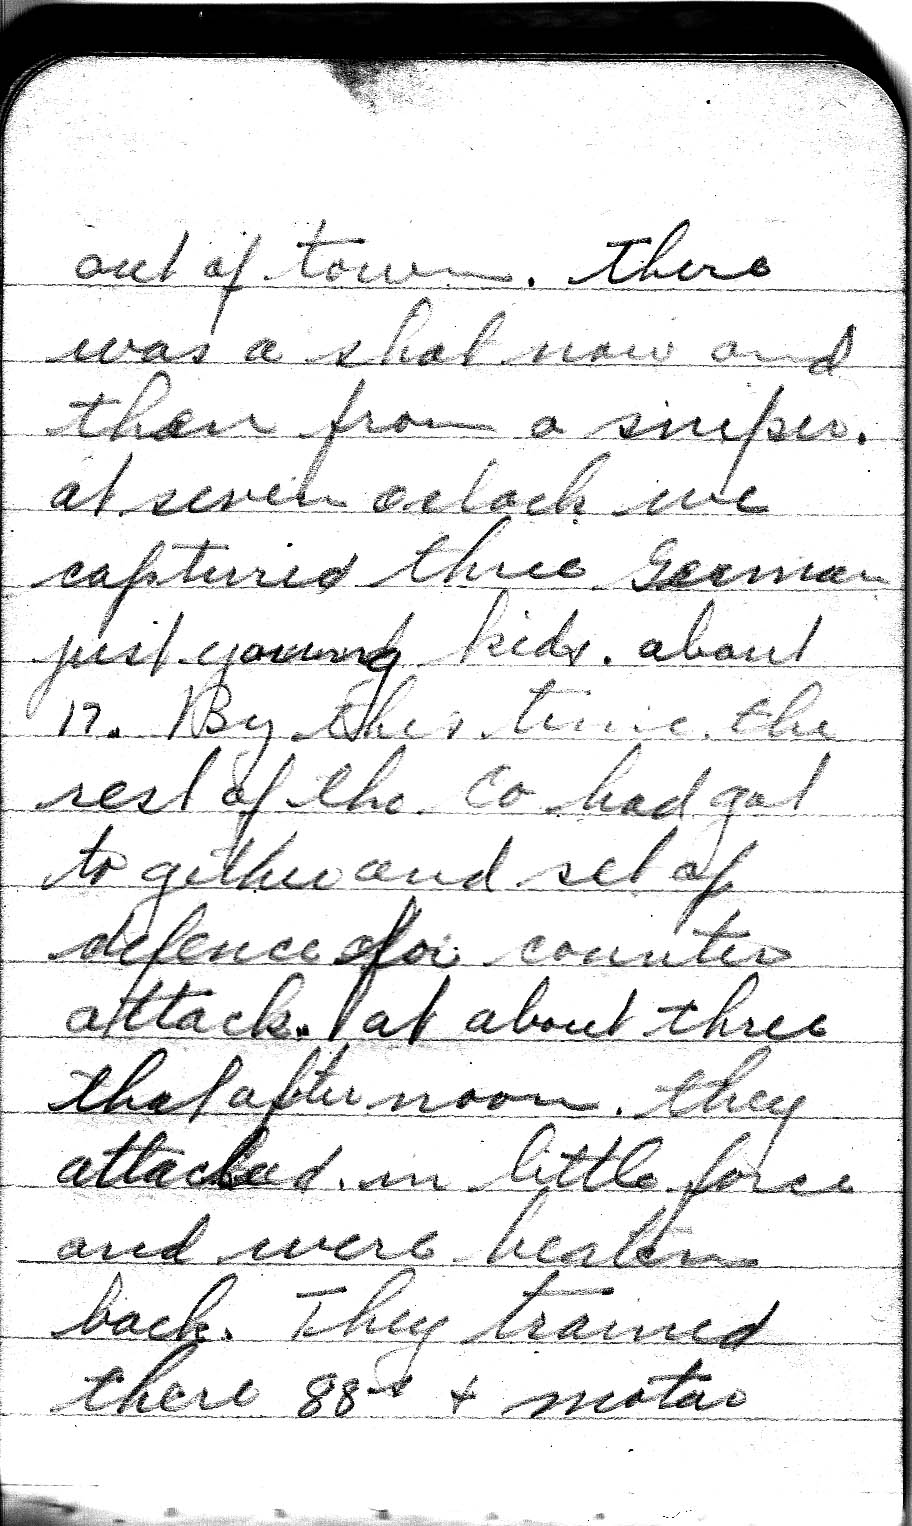 out of town. There
was a shot now and
then from a sniper.
at seven oclock we
captured three German
just young kids. about
17. By this time the
rest of the Co had got
to gether and set up
defence for counter
attack. at about three
that after noon. they
attacked in little force
and were beaten
back. They trained
there 88s + motar